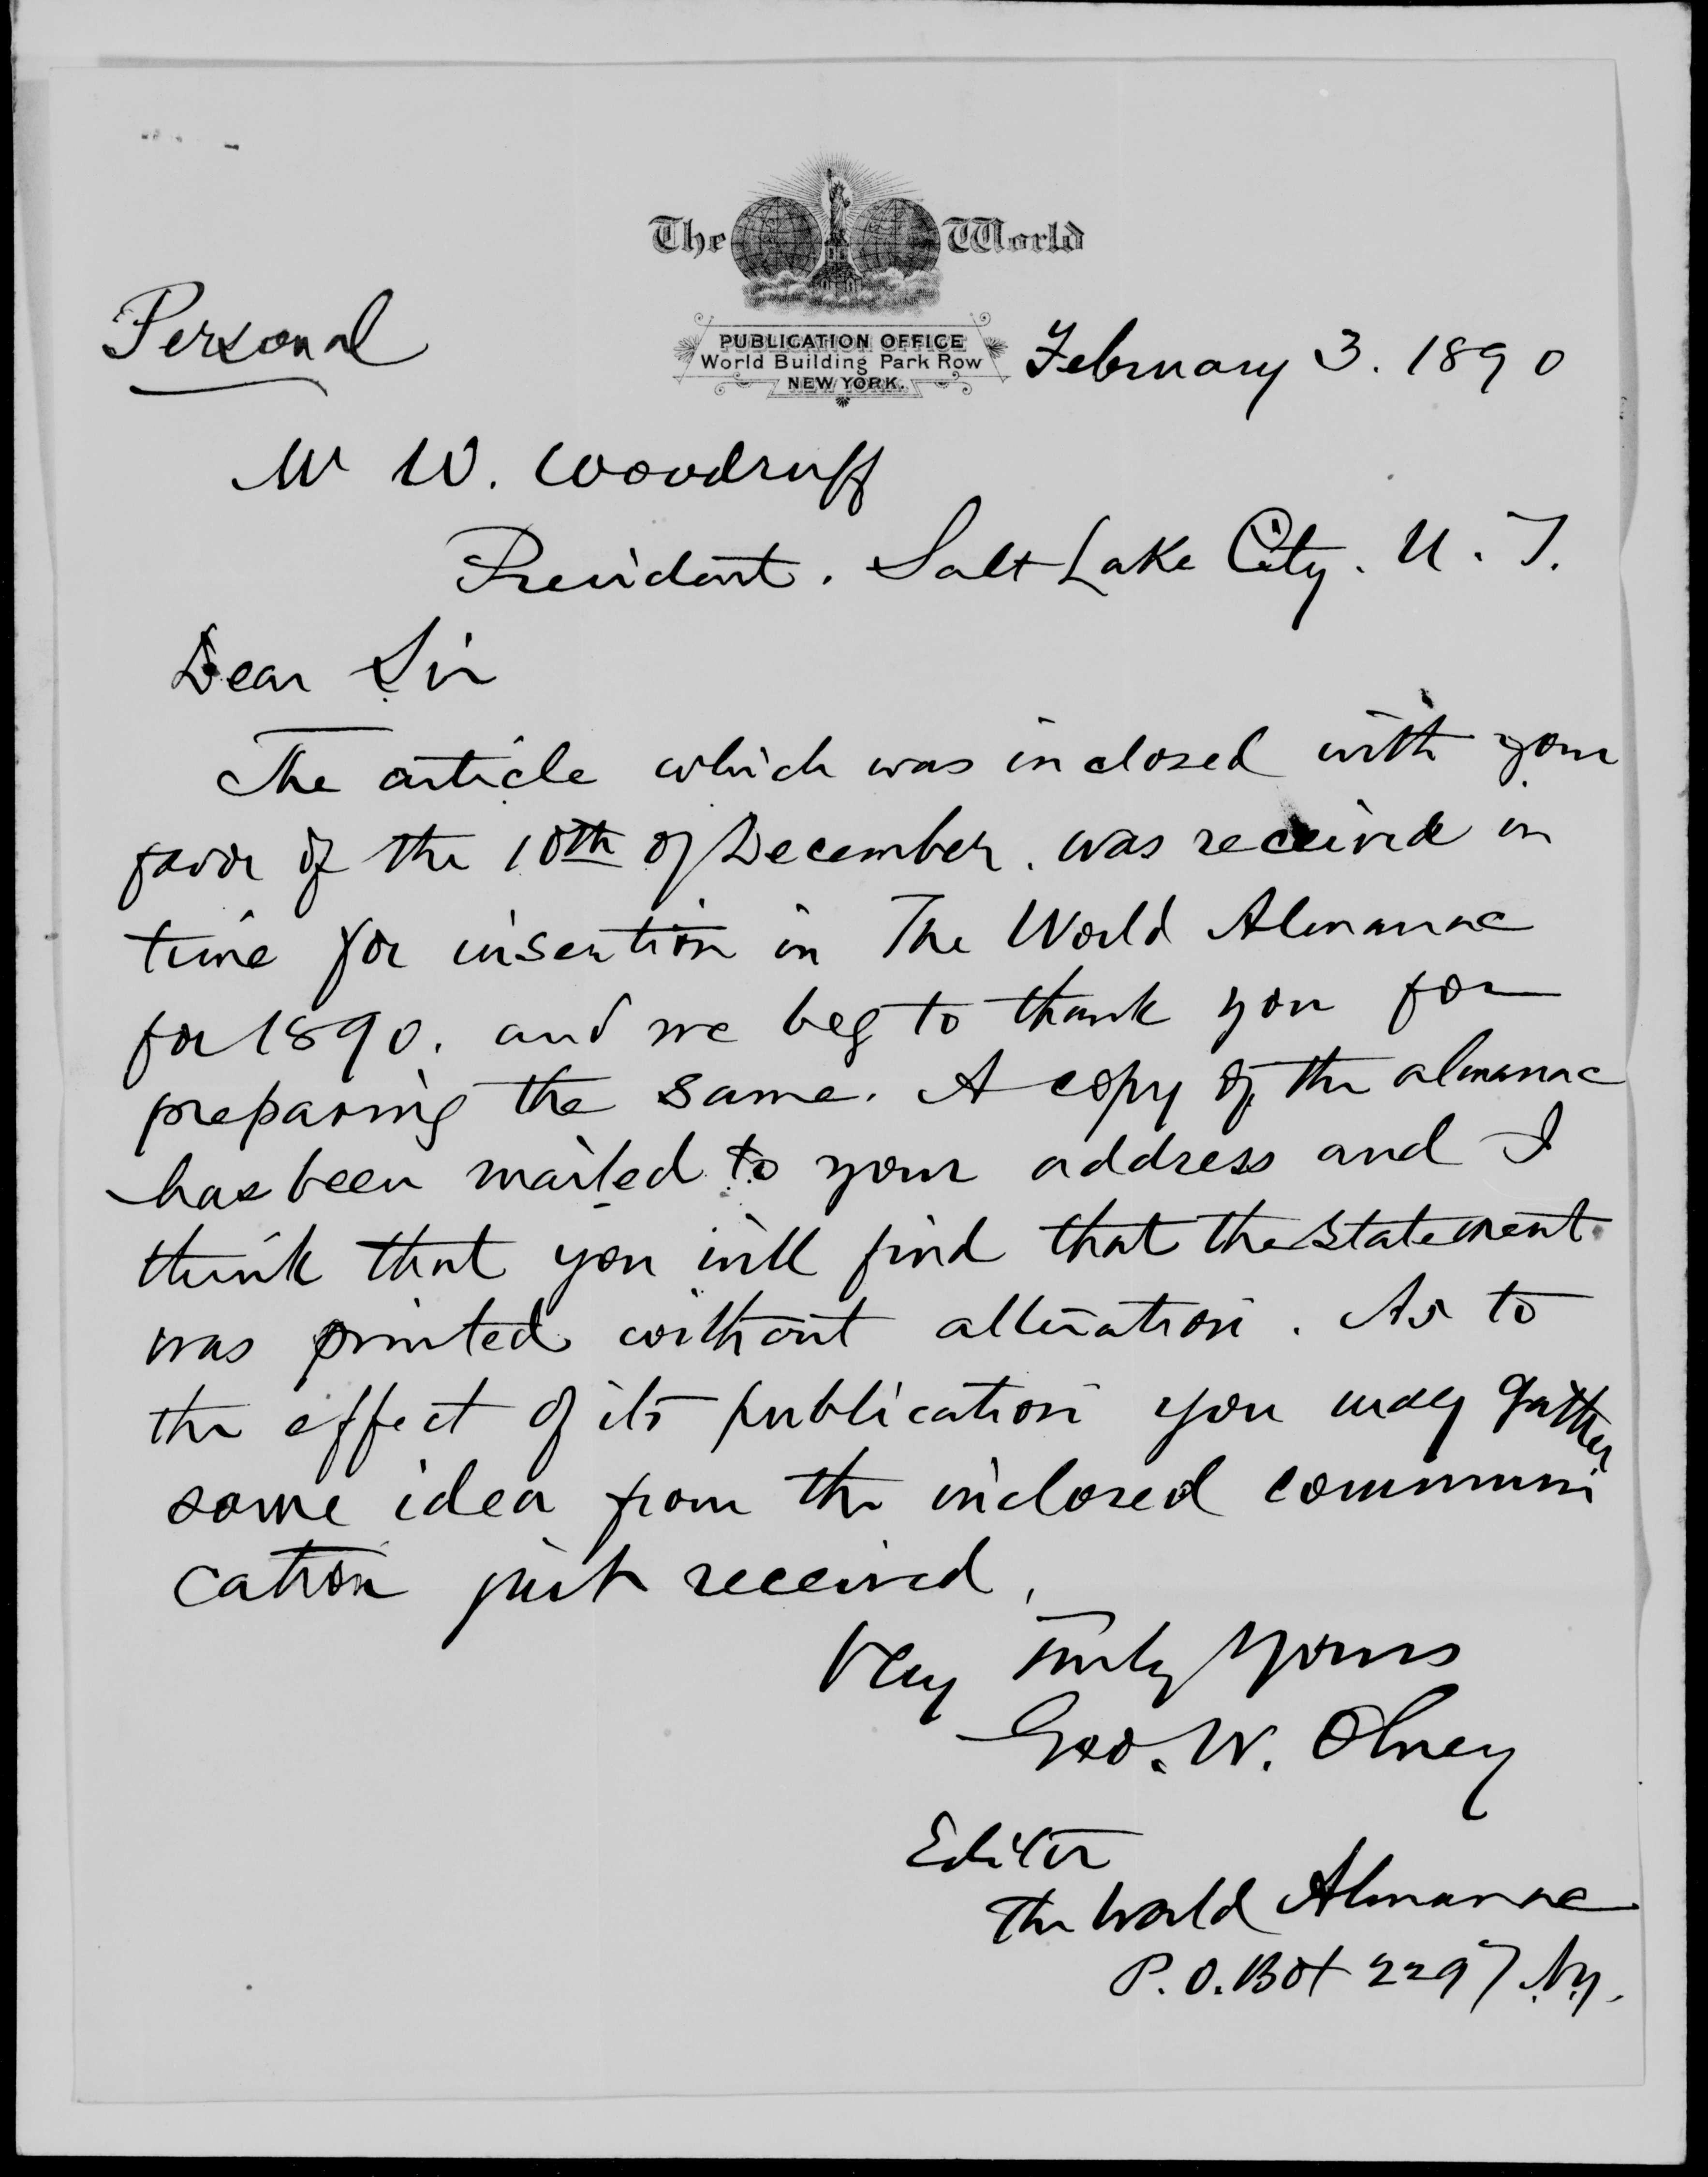 The World
PUBLICATION OFFICE
World Building Park Row
NEW YORK.
Personal
February 3. 1890
Mr W. Woodruff
President. Salt Lake City. U. T.
Dear Sir
The article which was inclosed with your
favor of the 10th of December. was received in
time for insertion in The World Almanac
for 1890. and we beg to thank you for
preparing the same. A copy of the almanac
has been mailed to your address and I
think that you will find that the statement
was printed without alteration. As to
the effect of its publication you may gather
some idea from the inclosed communi
cation just received,
Very truly yours
Geo. W. Olney
Editor
The World Almanac
P.O. Box 2297 N.Y.